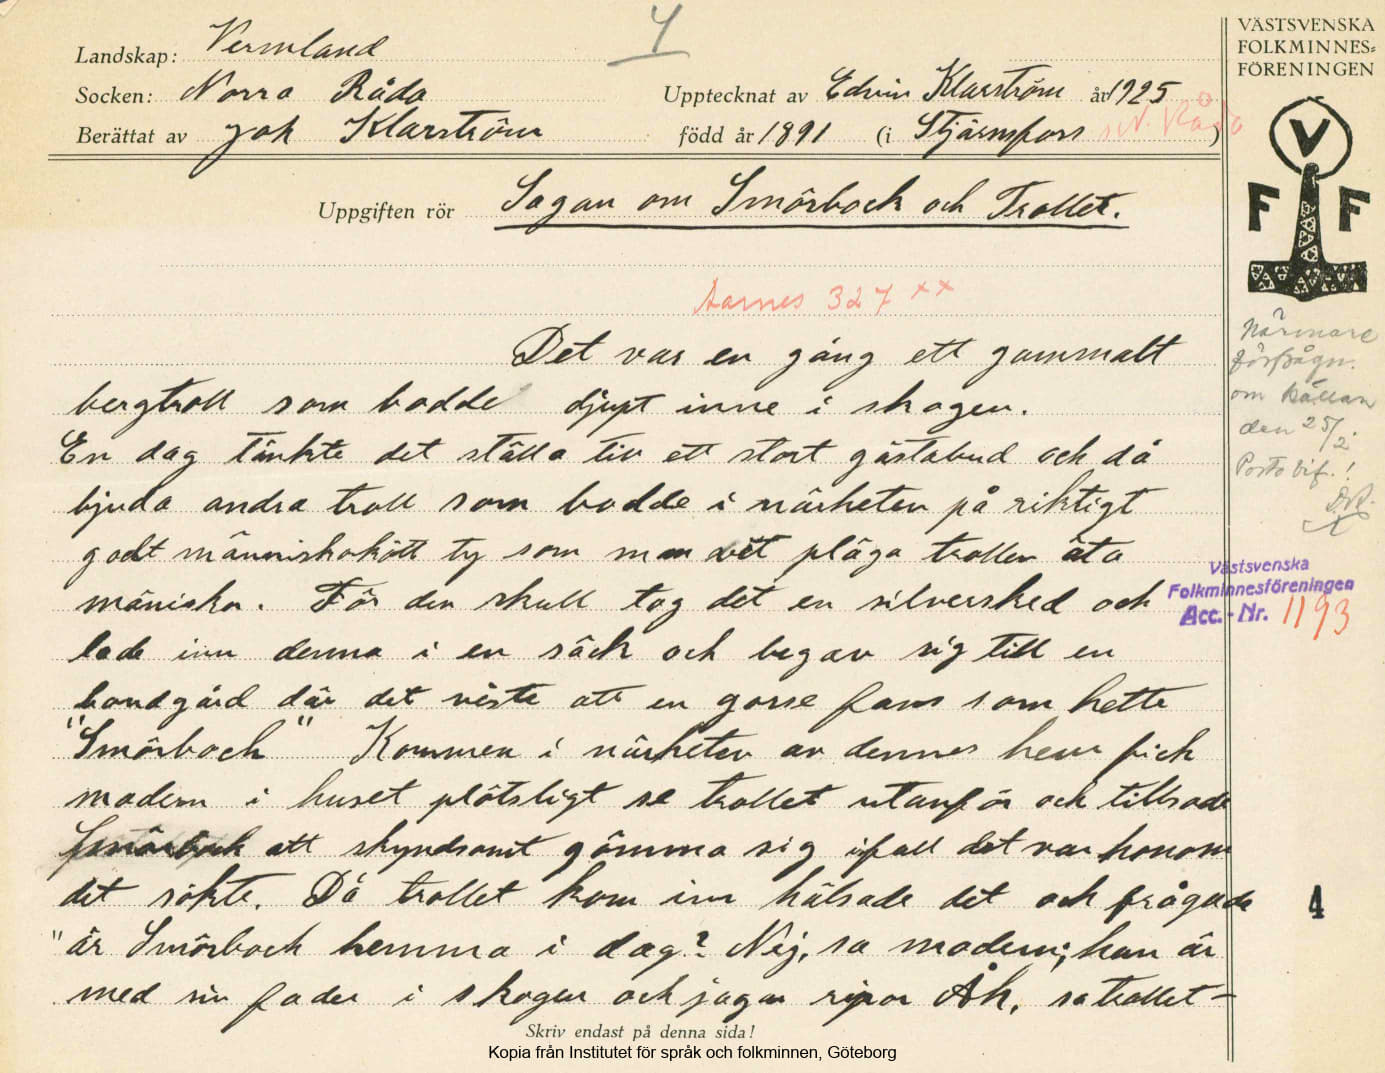 4
Landskap: Vermland
Socken: Norra Råda
Upptecknat av Edvin Klarström år 1925
Berättat av Joh Klarström
född år 1891 (i Stjärnsfors s N. Råda)
Uppgiften rör Sagan om Smörbock och Trollet.
Aarnes 327 xx
Det var en gång ett gammalt
bergtroll som bodde djupt inne i skogen.
En dag tänkte det ställa till ett stort gästabud och då
bjuda andra troll som bodde i närheten på riktigt
godt människokött ty som man vet pläga trollen äta
mäniskor. För den skull tog det en silversked och
lade inn denna i en säck och begav sig till en
bondgård där det viste att en gosse fans som hette
"Smörbock" Kommen i närheten av dennes hem fick
modern i huset plötsligt se trollet utanför och tillsade
Smörbock att skyndsamt gömma sig ifall det var honom
det sökte. Då trollet kom inn hälsade det och frågade
"är Smörbock hemma i dag? Nej, sa modern; han är
med sin fader i skogen och jagar ripor Åh, sa trollet –
Skriv endast på denna sida!
Kopia från Institutet för språk och folkminnen, Göteborg
VÄSTSVENSKA
FOLKMINNES=
FÖRENINGEN
V
F F
Närmare
förfrågn.
om källan
den 25/2.
Porto bif.!
Västsvenska
Folkminnesföreningen
Acc.-Nr. 1193
4